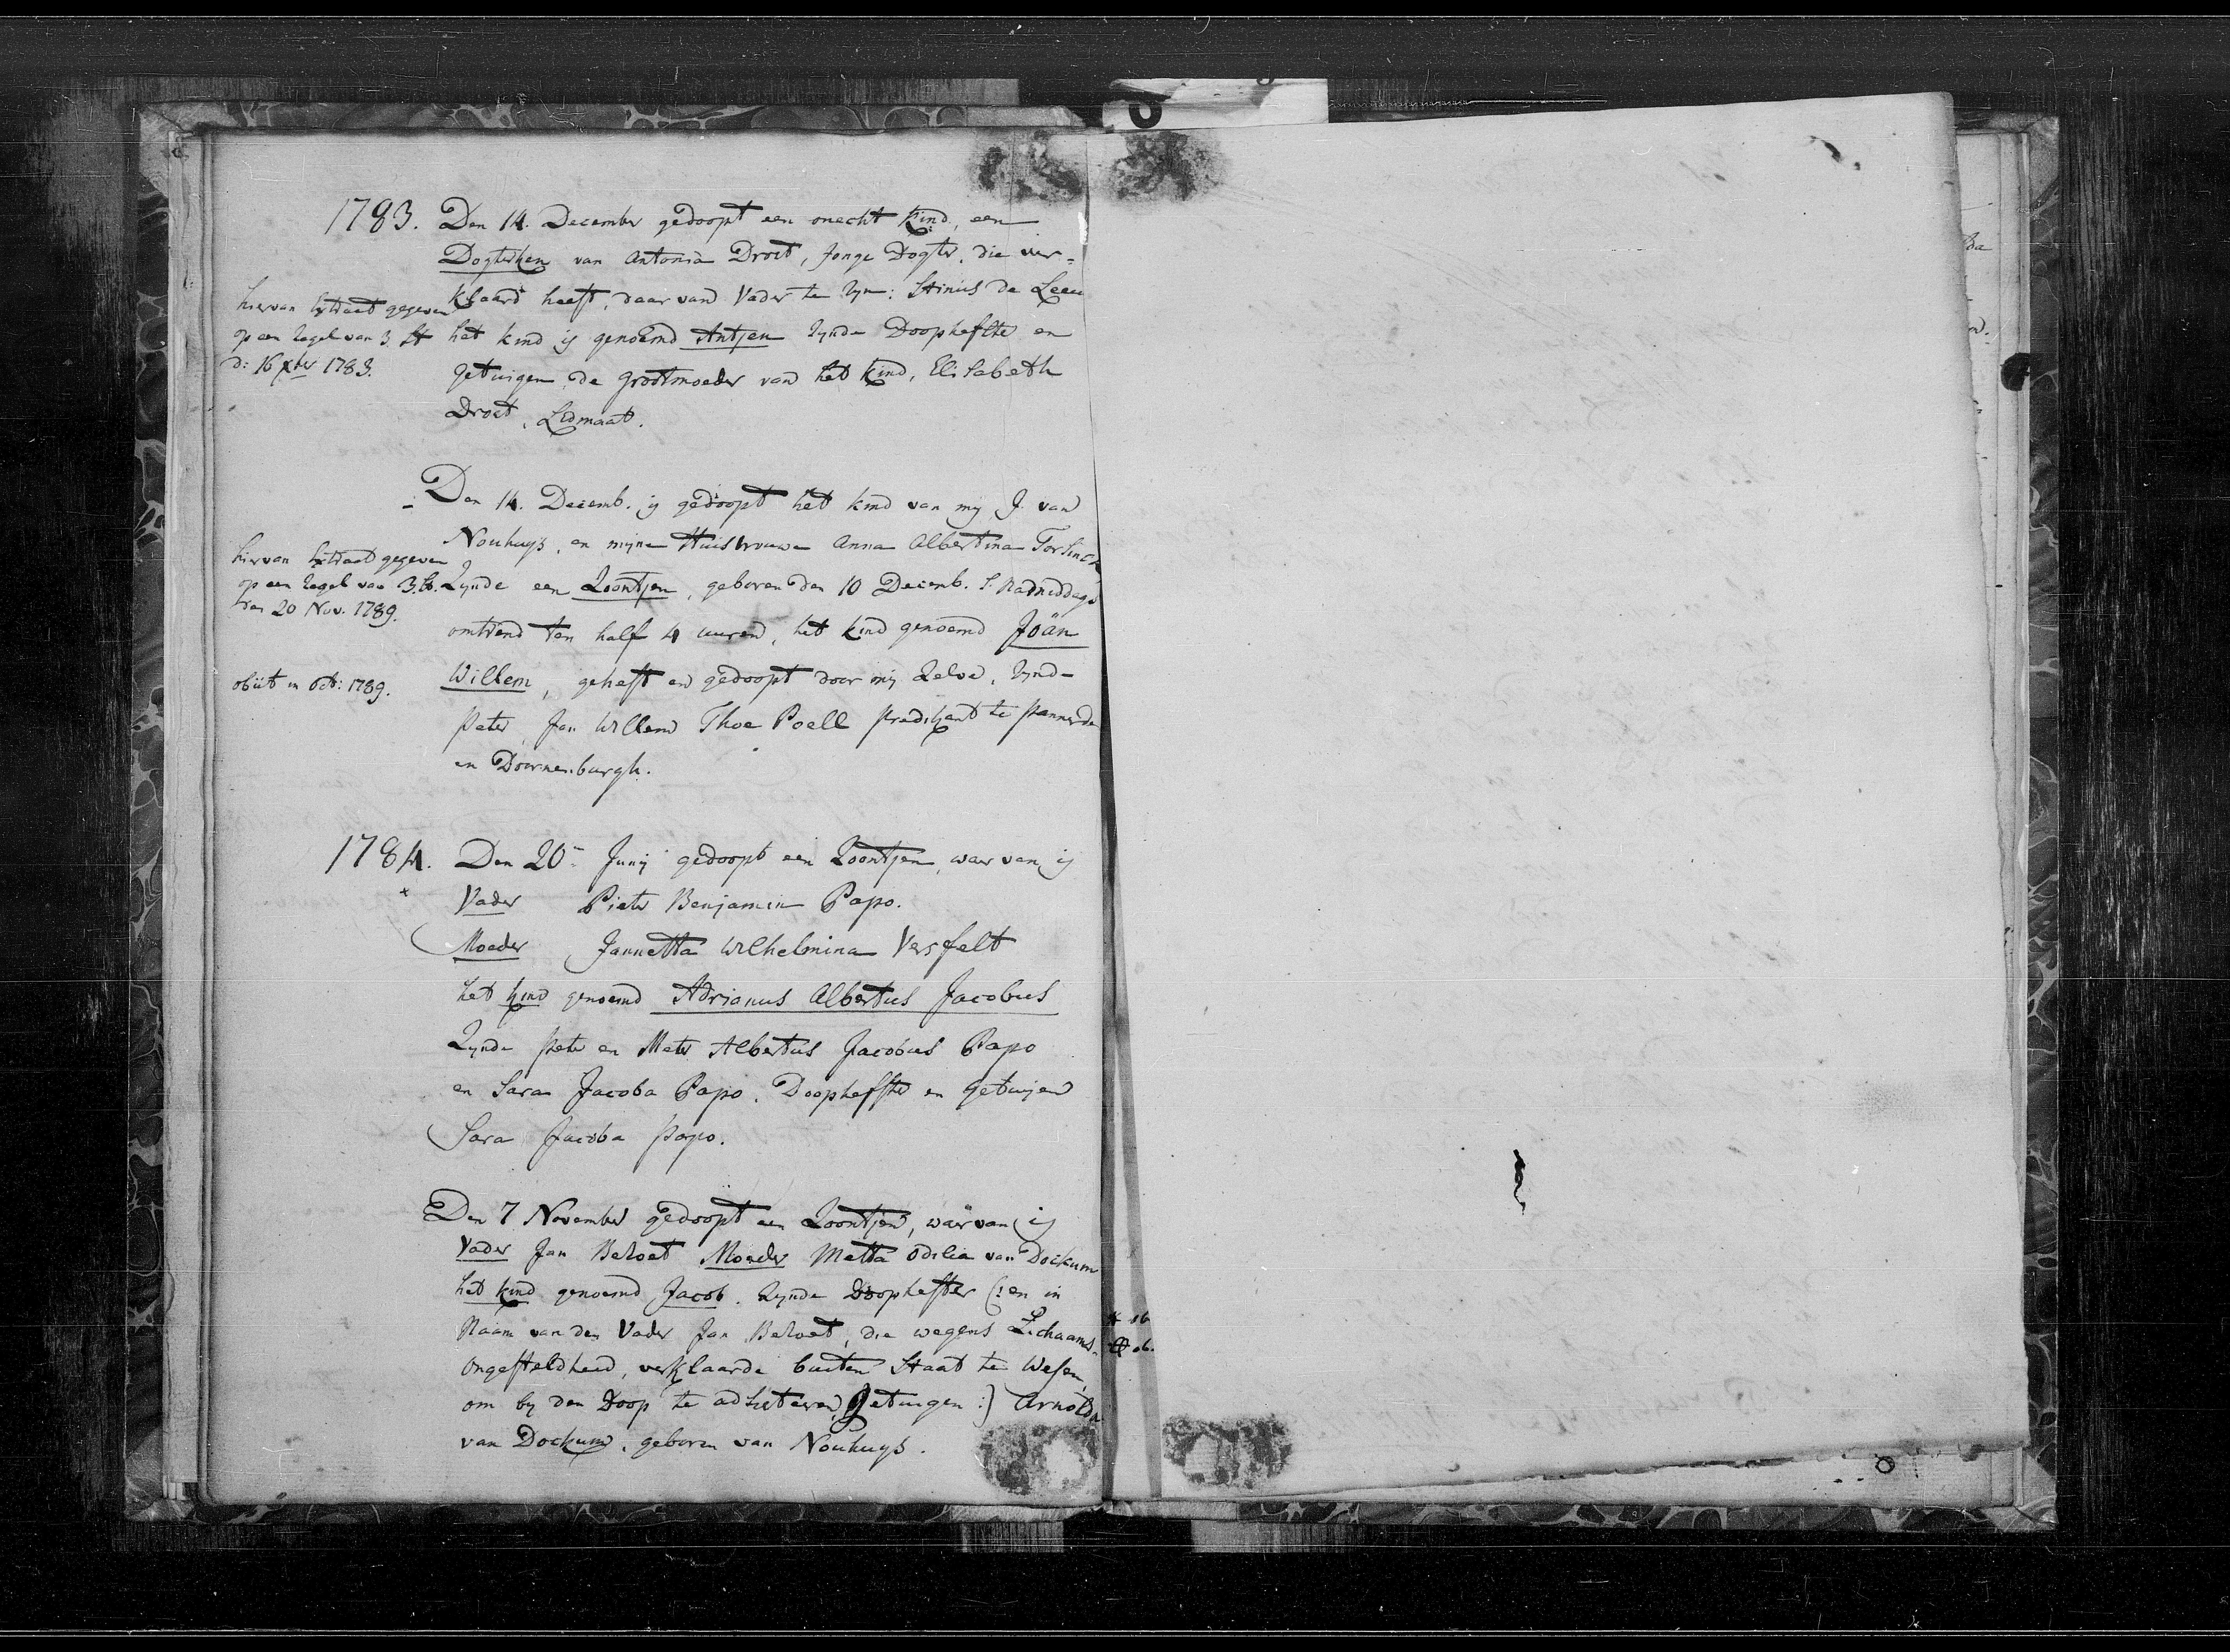 1783. Den 14. December gedoopt een onecht kind, een
Dogterken van Antonia Droct, Jonge Dogter, die ver=
klaard heeft, daar van Vader te zyn: Stinus de Leeu
hiervan Extract gegeven
op een zegel van 3. St
d: 16 xber 1783.
het kind is genoemd Antjen zynde Doophefster en
getuigen de grootmoeder van het kind, Elisabeth
Droct, Ledmaat.
Den 14. Decemb. is gedoopt het kind van my J. van
Nouhuys, en mijne Huisvrouwe Anna Albertina
hiervan Extract gegeven
op een zegel van 3. St.
den 20 Nov. 1789.
Zynde een Zoontjen, geboren den 10 Decemb. s. Nadmiddags
omtrend ten half 4 uuren, het kind genoemd Joän
obiit in Oct: 1789.
Willem, geheft en gedoopt door mij Zelve, zynd-
Peter, Jan Willem Thoe Poell Predikant te Pannerde
en Doornenburgh.
1784. Den 20n Junij gedoopt een Zoontjen, waar van is
Vader Pieter Benjamin Papo.
Moeder Jannetta Wilhelmina Versfelt
het kind genoemd Adrianus Albertus Jacobus
Zynde Peter en Meter Albertus Jacobus Papo
en Sara Jacoba Papo. Doophefster en Getuijen
Sara Jacoba Papo.
Den 7 November gedoopt een Zoontjen, waar van is
Vader Jan Beloet Moeder Metta Odilia van Dockum
het kind genoemd Jacob. zynde Doophefster (: en in
Naam van den Vader Jan Beloet, die wegens Lichaams-
Ongesteldheid, verklaarde buiten Staat te Wesen,
om by den Doop te adsisteren, Getuigen :) Arnolda
van Dockum, geboren van Nouhuys.